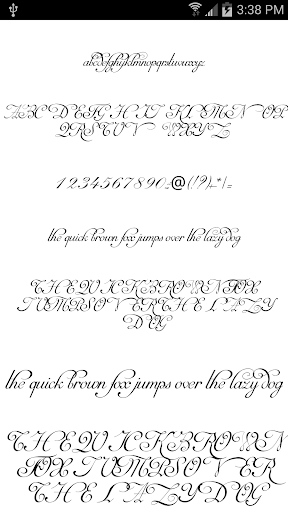 3:38 PM
abcdefghijklmnopqrstuvwxyz
ABCDEFGHIJKLMNOP
QRSTUVWXYZ
1234567890=@(!?)_.*|=
the quick brown fox jumps over the lazy dog
THE QUICK BROWN FOX
JUMPS OVER THE LAZY
DOG
the quick brown fox jumps over the lazy dog
THE QUICK BROWN
FOX JUMPS OVER
THE LAZY DOG